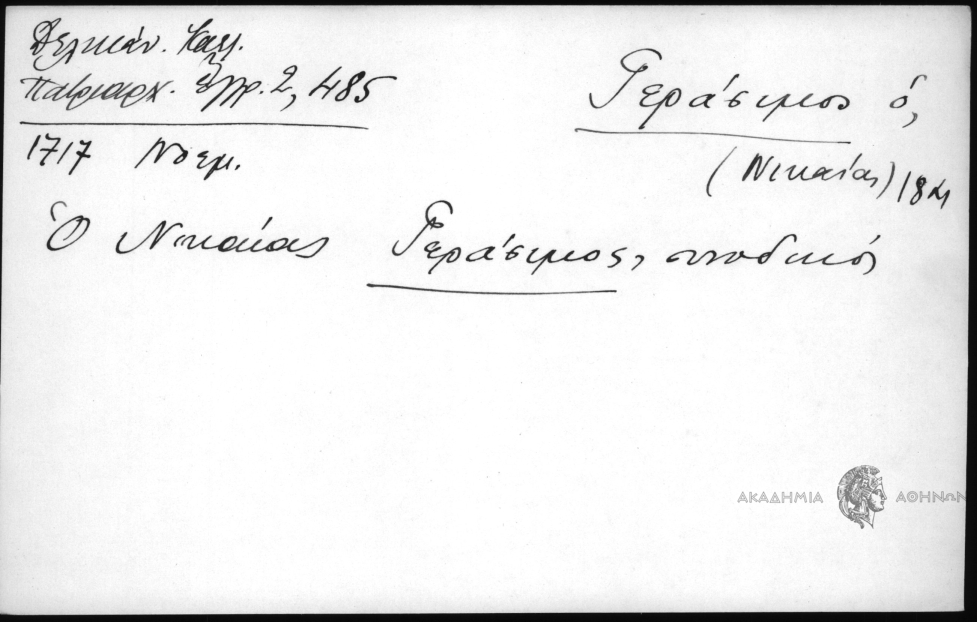 Δελικάν. Καλ.
Πατριαρχ. Ἔγγρ. 2, 485
Γεράσιμος ὁ,
1717 Νοεμ.
(Νικαίας) 18
Ὁ Νικαίας Γεράσιμος, συνοδικός
ΑΚΑΔΗΜΙΑ ΑΘΗΝΩΝ